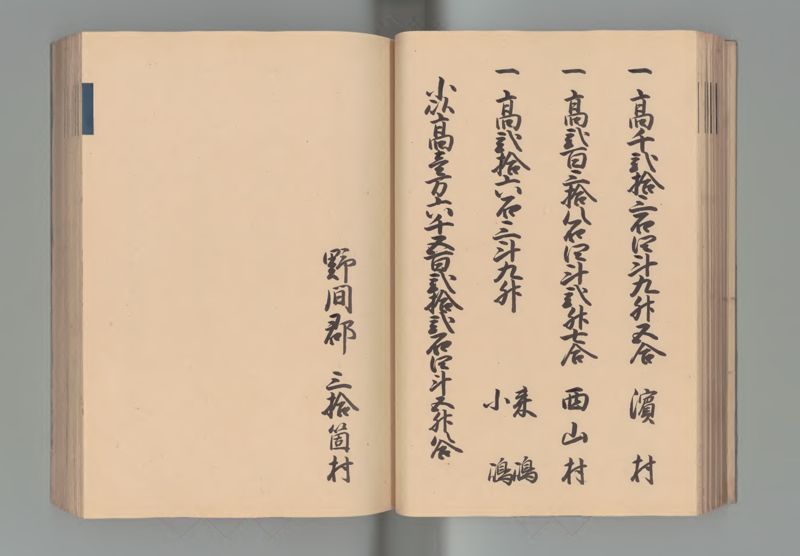 一高千弐拾三石四斗九升五合 濱村
一高弐百三拾八石四斗弐升七合 西山村
一高弐拾六石三斗九升 来嶋
小嶋
小以高壱万六千五百弐拾弐石四斗五升八合
野間郡 三拾箇村